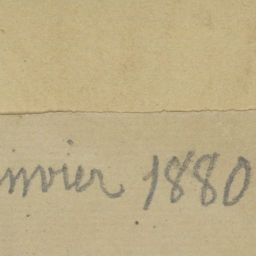 invier 1880